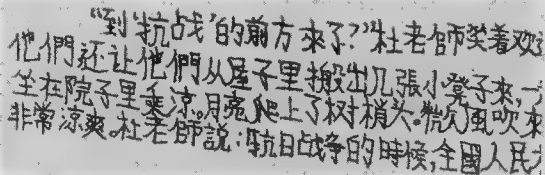 “到‘抗战’的前方来了？”杜老師笑着欢
他們还让他們从屋子里搬出几張小凳子來，一
坐在院子里乘涼。月亮爬上了树梢头。微風吹來
非常涼爽。杜老師説：“抗日战争的時候，全國人民